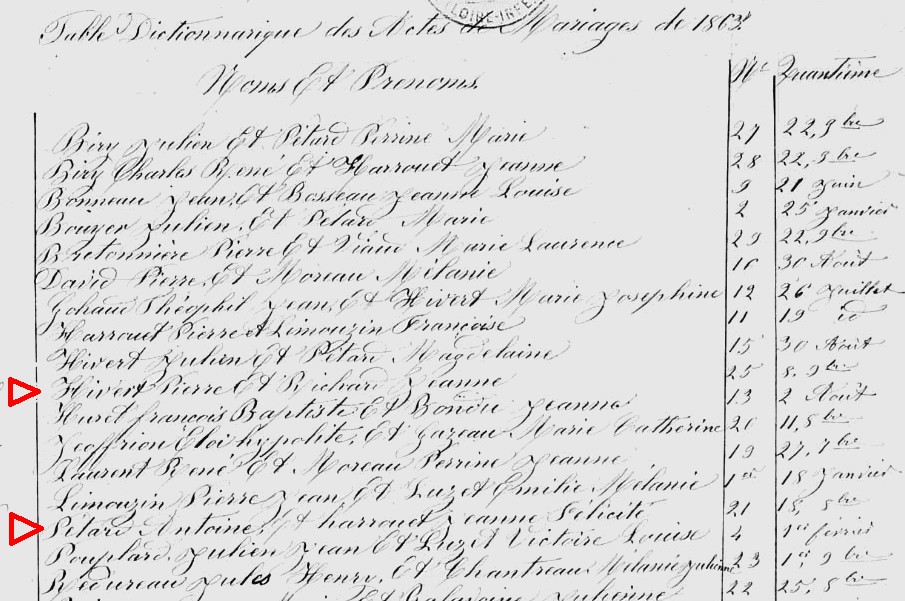 LOIRE-INFE
Table Dictionnarique des Actes de Mariages de 1863.
Noms Et Prenoms. Nos Quantième
Biry Julien Et Pétard Perrine Marie 27 22, 9bre
Biry Charles René Et Harrouet Jeanne 28 22, 9bre
Bonneau Jean, Et Bosseau Jeanne Louise 9 21 Juin
Bouyer Julien, Et Pétard Marie 2 25 Janvier
Bretonnière Pierre Et Viaud Marie Laurence 29 22, 9bre
David Pierre, Et Moreau Mélanie 16 30 Août
Gohaud Théophil Jean, Et Hivert Marie Josephine 12 26 Juillet
Harrouet Pierre et Limouzin Françoise 11 19 id
Hivert Julien Et Pétard Magdelaine 15 30 Août
Hivert Pierre Et Richard Jeanne 25 8. 9bre
Huret françois Baptiste Et Jeanne 13 2 Août
Jeoffrion Éloi hypolite, Et Gazeau Marie Catherine 20 11, 8bre
Laurent René Et Moreau Perrine Jeanne 19 27, 7bre
Limouzin Pierre Jean Et Luzet Emilie Mélanie 1er 18 Janvier
Pétard Antoine, Et harrouet Jeanne Félicité 21 18, 8bre
Pouplard Julien Jean Et Luzet Victoire Louise 4 1er février
Rédureau Jules Henry, Et Chantreau Mélanie Julienne 23 1er, 9bre
Et Julienne 22 25, 8bre